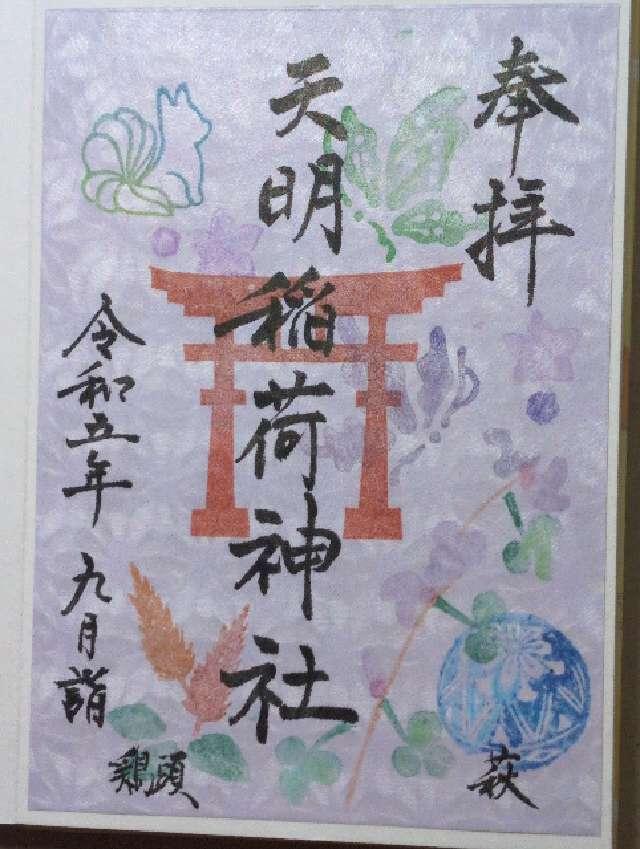 奉拝
天明稲荷神社
令和五年 九月 詣
鶏頭
萩